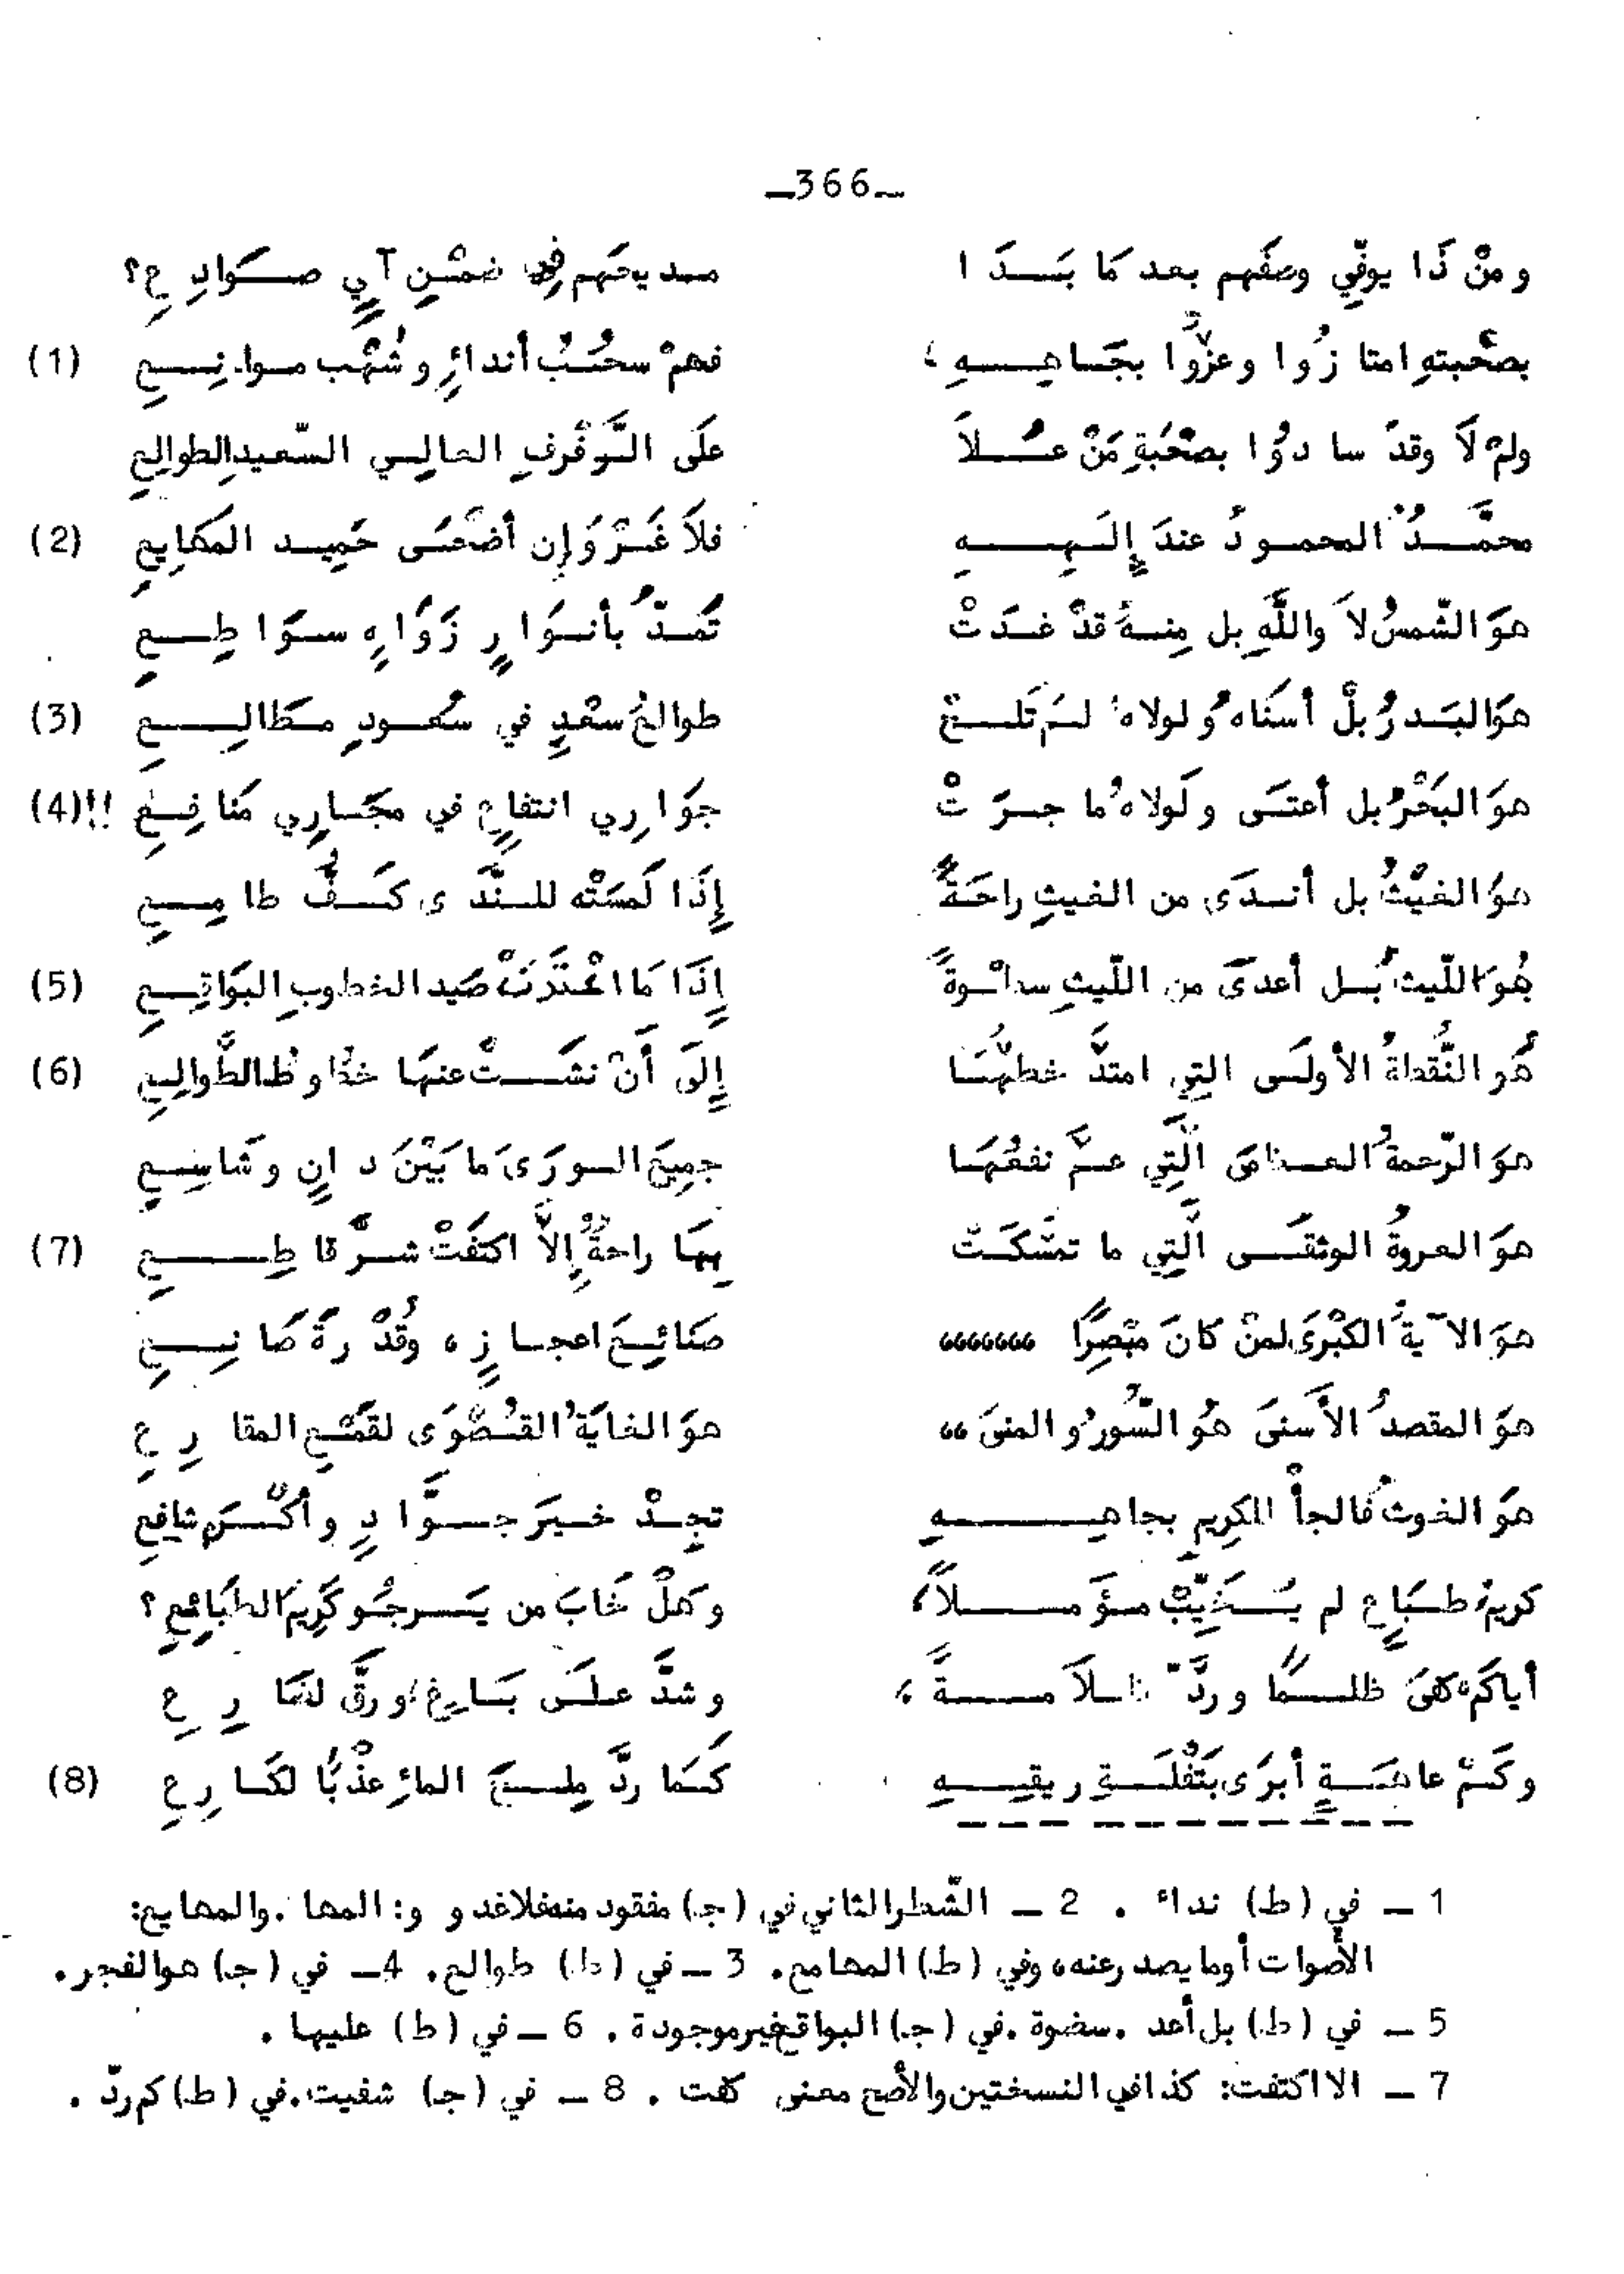 ـ366ـ
ومنْ ذَا يوفّي وصفَهم بعد كَما بَدَا مديحَهم في ضمْنِ آيٍ صَوَادِعِ؟
بصحْبتهِ امتازُوا وعزّوا بجَاهِهِ، فهمْ سحُبُ أنداءٍ وشُهْب موانِعِ (1)
ولمْ لاَ وقدْ سادوُا بصحْبَةِ مَنْ عَلاَ علَى الرَّفْرفِ العالِي السّعيدِ الطوالِعِ
محمَّدُ المحمودُ عندَ إِلَهِهِ فلاَ غَرْوَ وَإِن أضْحَى حَمِيد المهَايِعِ (2)
هوَ الشّمسُ لاَ واللَّهِ بل مِنهُ قدْ غدَتْ تَمدّ بأنوَارٍ زَوَاهٍ سوَاطِعِ
هوَ البَدرُ بلْ أسنَاهُ ولولاهُ لمْ تَلعْ طوالعُ سعْدٍ في سُعودِ مطَالِعِ (3)
هوَ البَحْرُ بل أعتَى وَلَولاهُ ما جرَتْ جوَارِي انتفاعٍ في مجَارِي مَنافِعِ !! (4)
هوَ الغيْثُ بل أندَى من الغيثِ راحَةً إِذَا لَمسَتْه للنَّدَى كَفُّ طامِعِ
هُوَ اللّيثُ بَل أعدَى من اللّيثِ سطْوةً إِذَا مَا اعْتدَتهْ صَيد الخطوبِ البَوَاقِعِ (5)
هُو النُّقطةُ الأولَى التِي امتدَّ خطهَّا إِلَى أَنْ نشَتْ عنهَا خطُاوطُ الطَّوالِعِ (6)
هوَ الرّحمةُ العظمَى الَّتِي عمَّ نفعُهَا جمِيعَ الورَى مَا بَيْنَ دانٍ وشَاسِعٍ
هوَ العروةُ الوثقَى الَّتِي ما تمسَّكَتْ بِهَا راحةٌ إِلاَّ اكتفَتْ شرَّ قاطِعِ (7)
هوَ الآيةُ الكبْرَى لمنْ كانَ مبْصِرًا ،،،،،،، صَنائِعَ اعجازٍ، وقُدْرَةَ صَانِعِ
هوَ المقصدُ الأَسنىَ هُو السُّورُ والمنىَ ،، هوَ الغايَةُ القُصْوَى لقمْعِ المقارِعِ
هوَ الغوثُ فَالجأْ الكرِيمِ بجاهِهِ تجِدْ خيرَ جوَّادٍ وأكْرَم شافِعِ
كريمُ طبَاعٍ لم يُخَيِّبْ مؤَمِلاً، وَهلْ خَابَ من يَرجُو كَرِيمَ الطبَائِعِ؟
أياكَم، كفىَ ظلمًا وردَّ ظلاَمةً، وشدَّ علَى بَاغٍ، ورقَّ لضَارِعِ
وكَمْ عاهَةٍ أبرَى بتَفْلَةِ ريقِهِ كَمَا ردَّ مِلحَ المائِ عذْبًا لكَارِعِ (8)
1 ـ في (ط) نداء . 2 ـ الشّطر الثاني في (جـ) مفقود منه فلا غدو و: المها .والمهايع:
الأصوات أو ما يصدر عنه، وفي (ط) المهامع. 3 ـ في (ط) طوالع. 4ـ في (جـ) هو الفجر.
5 ـ في (ط) بل أعد .سضوة .في (جـ) البواقع غير موجودة . 6 ـ في (ط) عليها .
7 ـ الا اكتفت: كذا في النسختين والأصح معنى كفت . 8 ـ في (جـ) شفيت .في (ط) كم ردّ .